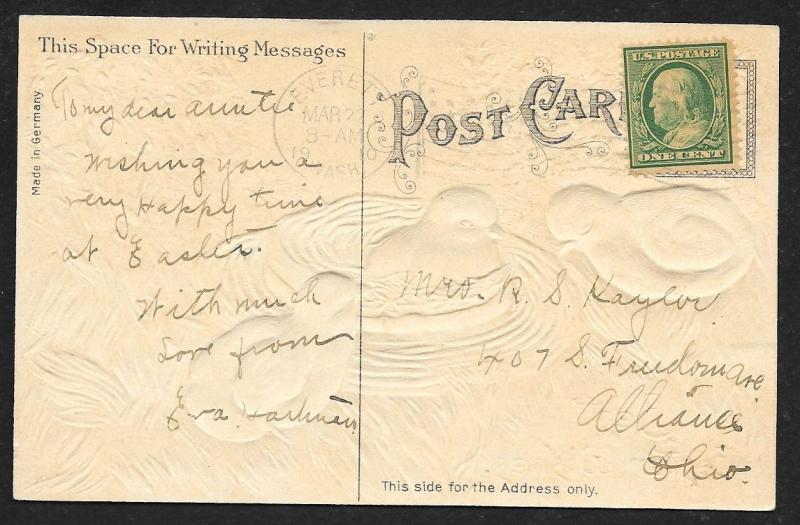 This Space For Writing Messages
Made in Germany.
To my dear auntie
Wishing you a
very Happy time
at Easter.
With much
Love from
Eva
EVERETT
MAR 2
5-AM
19
WASH
POST CAR
U.S. POSTAGE
ONE CENT
Mrs. R. S. Kaylor
407 S. Freedom Ave
Alliance
Ohio.
This side for the Address only.